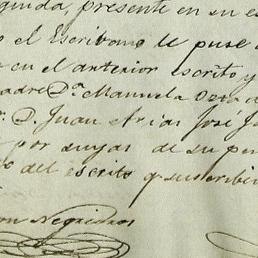 guida presente en su es
o el Escribano le puse d
e en el anterior escrito y
adre D.ª Manuela
r. D. Juan Arias José J
por suyas de su per
o del escrito q suscribi
on Negueiros